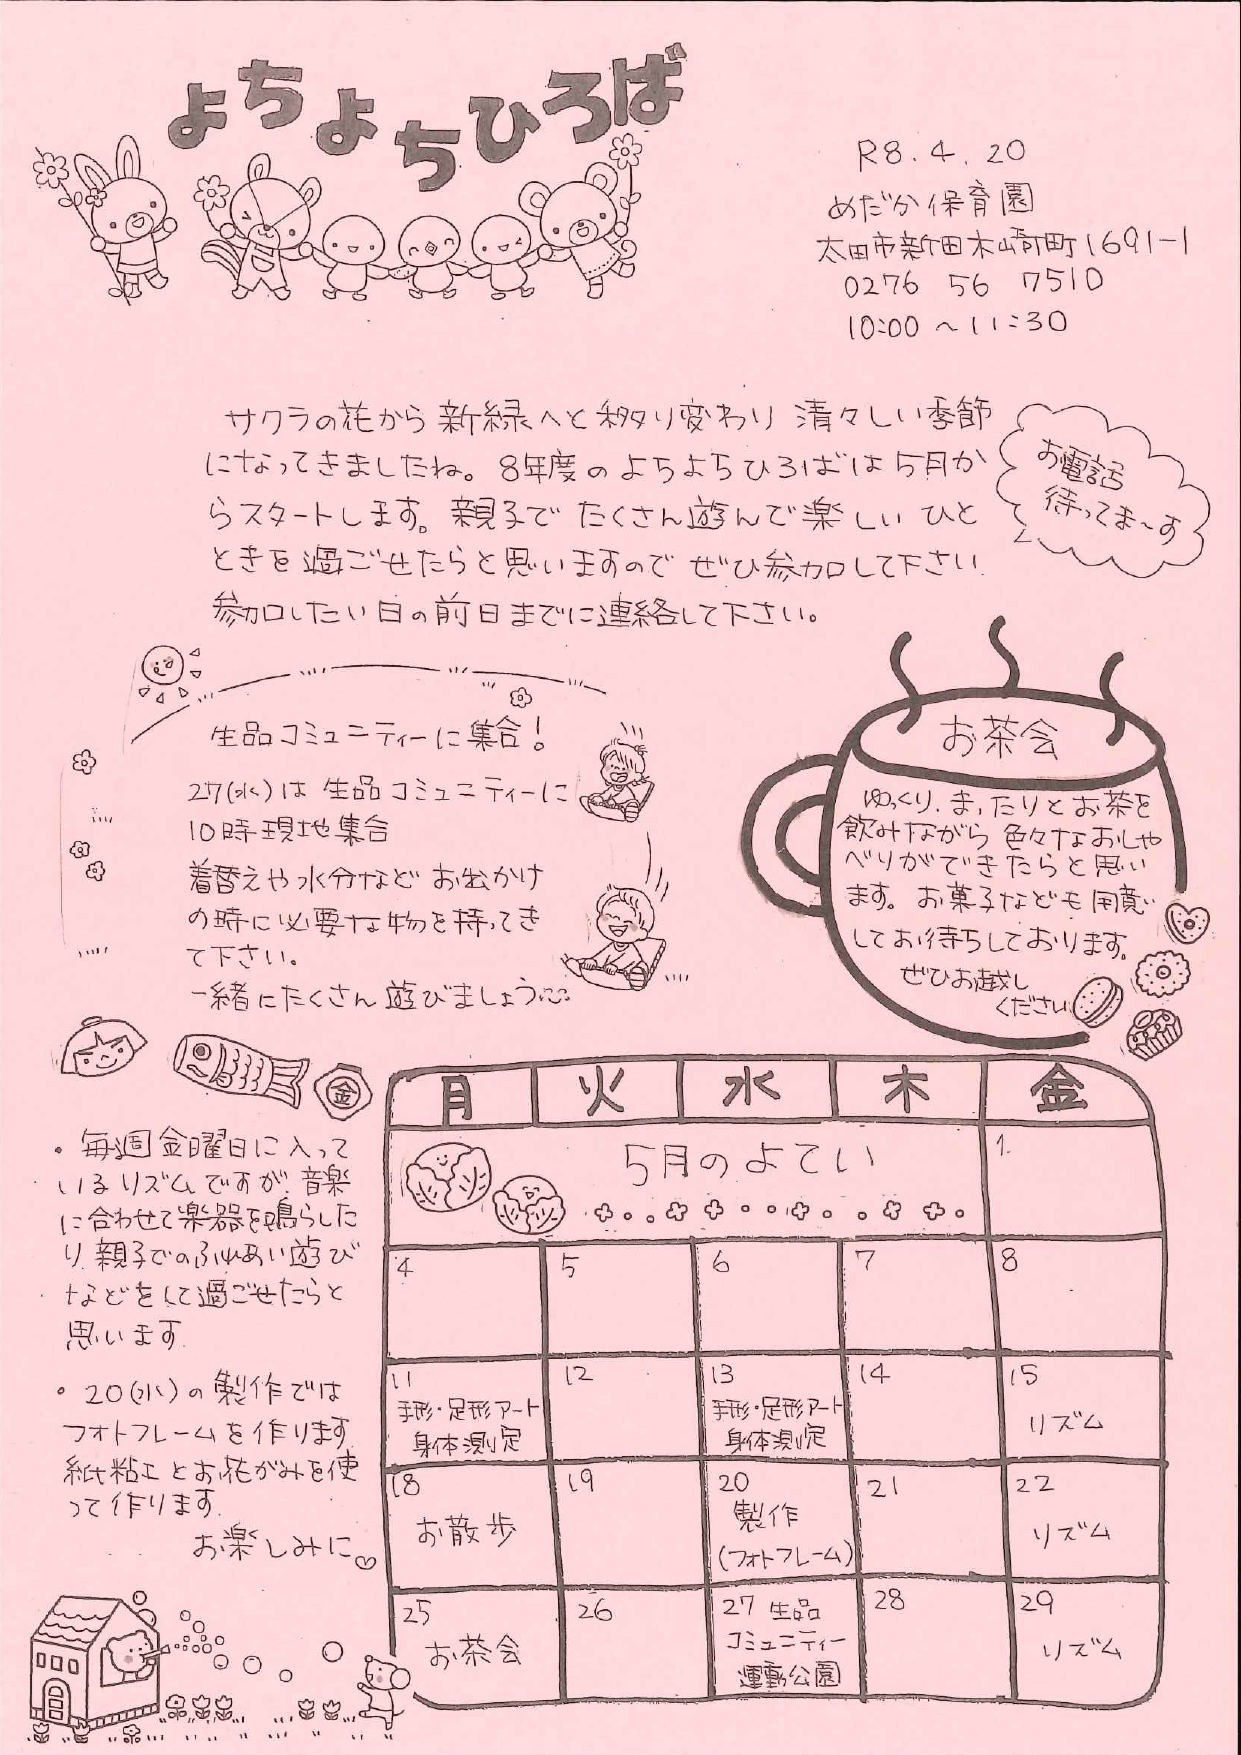 よちよちひろば
R8.4.20
めだか保育園
太田市新田木崎町1691-1
0276 56 7510
10:00～11:30
サクラの花から新緑へと移り変わり 清々しい季節
になってきましたね。8年度のよちよちひろばは5月か
らスタートします。親子でたくさん遊んで楽しいひと
ときを過ごせたらと思いますので ぜひ参加して下さい
参加したい日の前日までに連絡して下さい。
お電話
待ってま～す
生品コミュニティーに集合!
27(水)は生品コミュニティーに
10時現地集合
着替えや水分など お出かけ
の時に必要な物を持ってき
て下さい。
一緒にたくさん遊びましょう
お茶会
ゆっくり、まったりとお茶を
飲みながら 色々なおしゃ
べりができたらと思い
ます。お菓子なども用意
してお待ちしております。
ぜひお越し
ください
金
・毎週金曜日に入って
いるリズムですが、音楽
に合わせて楽器を鳴らした
り、親子でのふれあい遊び
などをして過ごせたらと
思います。
・20(水)の製作では
フォトフレームを作ります。
紙粘土とお花がみを使
って作ります。
お楽しみに♡
月 火 水 木 金
5月のよてい 1
4 5 6 7 8
11 12 13 14 15
手形・足形アート 手形・足形アート リズム
身体測定 身体測定
18 19 20 21 22
お散歩 製作 リズム
(フォトフレーム)
25 26 27 生品 28 29
お茶会 コミュニティー リズム
運動公園